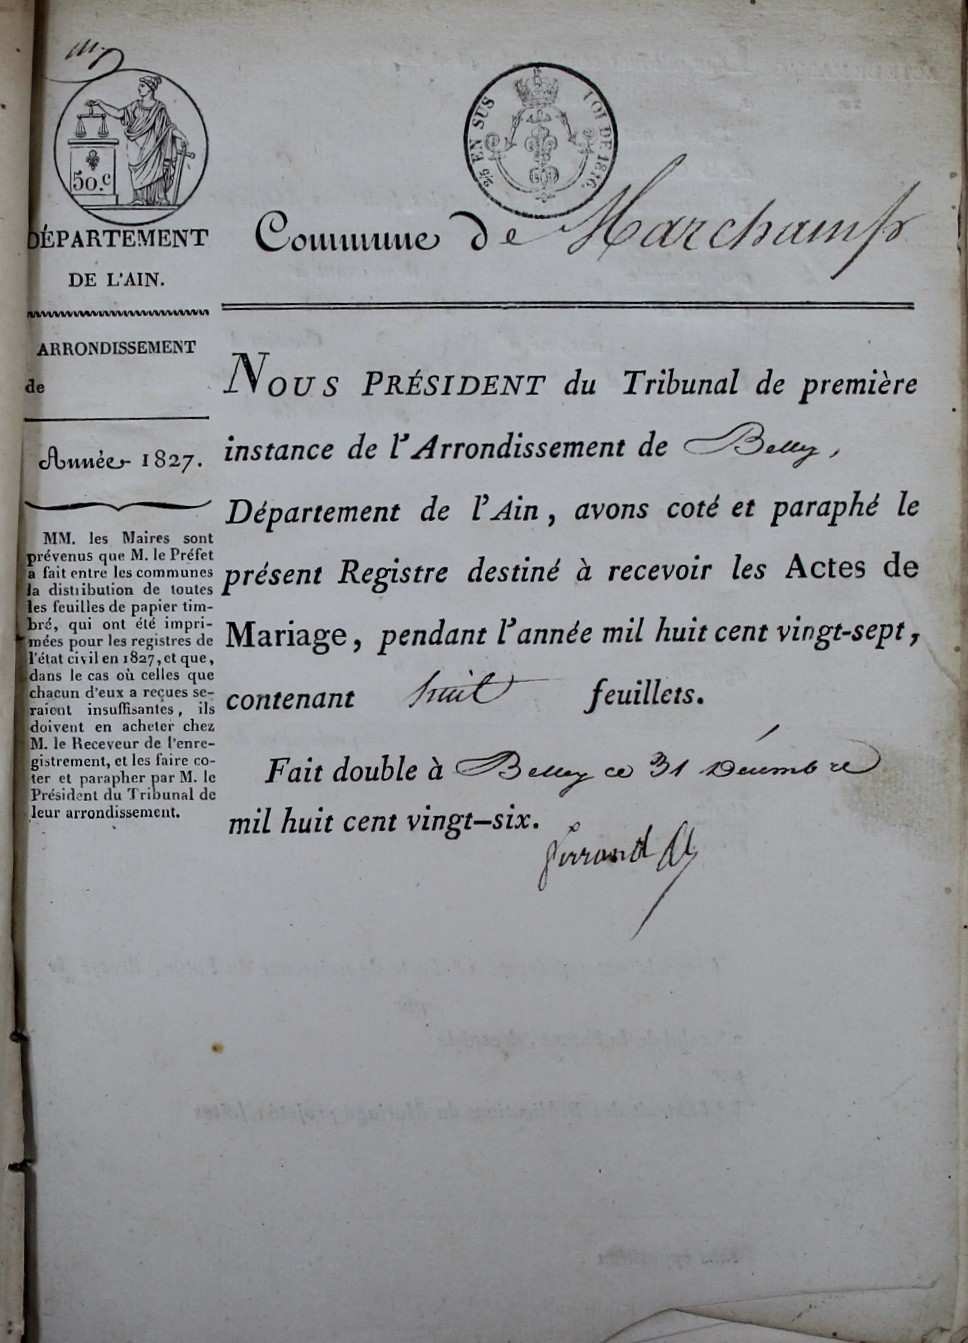 50.c
2/5 EN SUS LOI DE 1816.
DÉPARTEMENT
DE L'AIN.
ARRONDISSEMENT
de
Année 1827.
MM. les Maires sont
prévenus que M. le Préfet
a fait entre les communes
la distribution de toutes
les feuilles de papier tim-
bré, qui ont été impri-
mées pour les registres de
l'état civil en 1827, et que,
dans le cas où celles que
chacun d'eux a reçues se-
raient insuffisantes, ils
doivent en acheter chez
M. le Receveur de l'enre-
gistrement, et les faire co-
ter et parapher par M. le
Président du Tribunal de
leur arrondissement.
Commune de Marchamp
NOUS PRÉSIDENT du Tribunal de première
instance de l'Arrondissement de Belley,
Département de l'Ain, avons coté et paraphé le
présent Registre destiné à recevoir les Actes de
Mariage, pendant l'année mil huit cent vingt-sept,
contenant huit feuillets.
Fait double à Belley ce 31 Décembre
mil huit cent vingt-six.